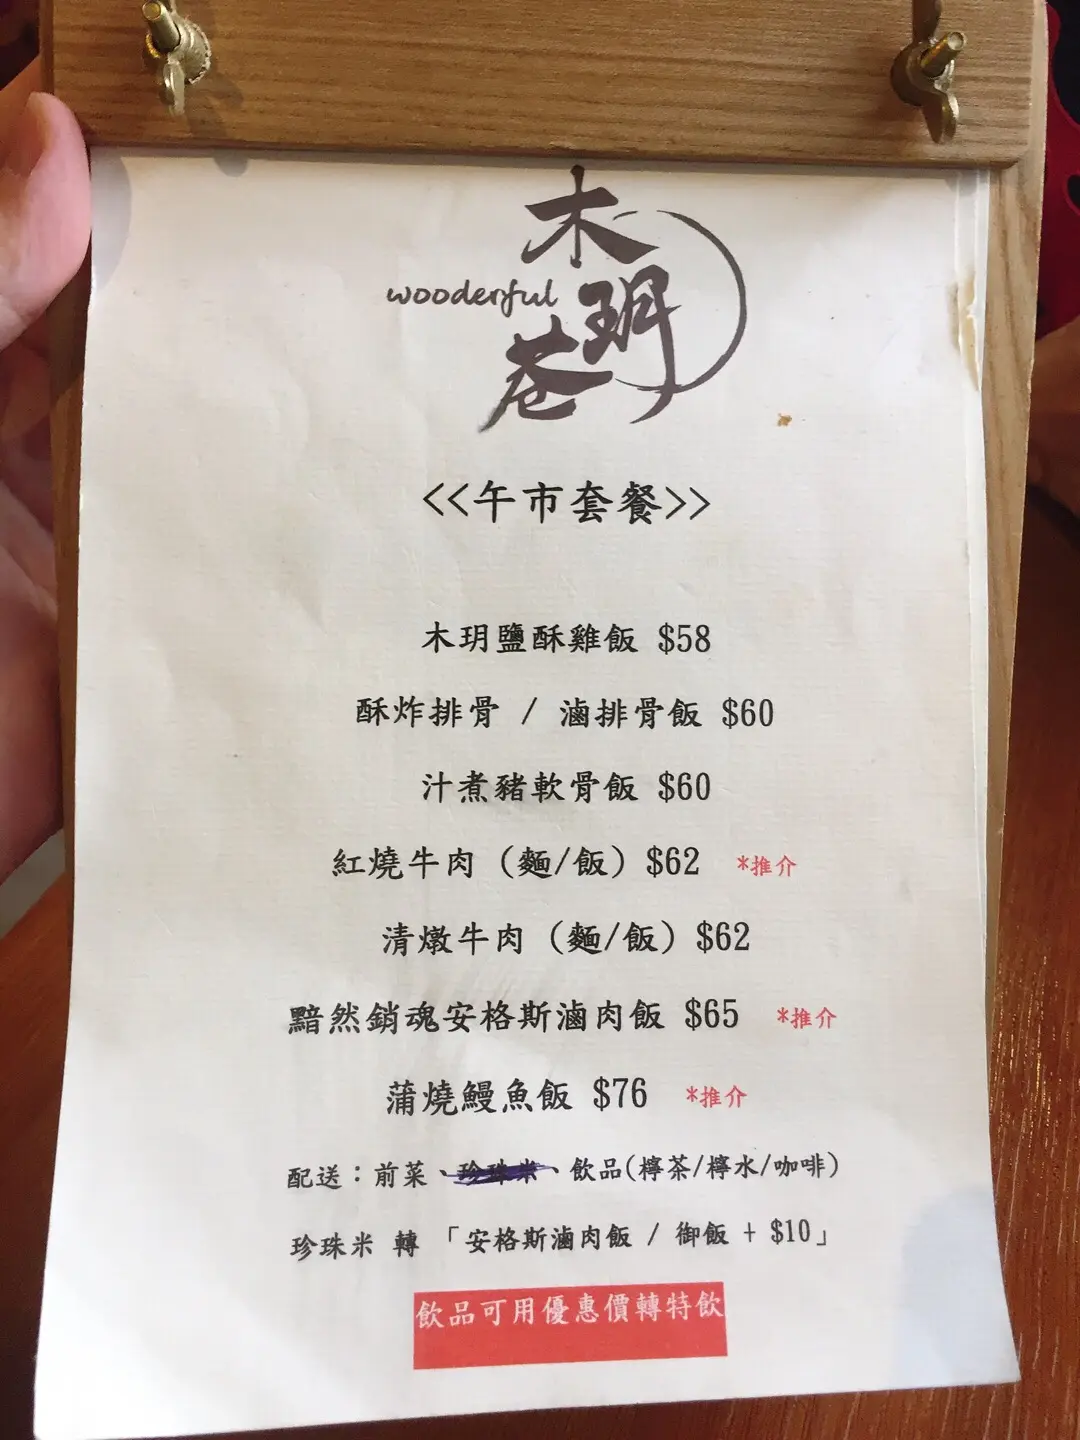 木玥巷
wooderful
<<午市套餐>>
木玥鹽酥雞飯 $58
酥炸排骨 / 滷排骨飯 $60
汁煮豬軟骨飯 $60
紅燒牛肉 (麵/飯) $62 *推介
清燉牛肉 (麵/飯) $62
黯然銷魂安格斯滷肉飯 $65 *推介
蒲燒鰻魚飯 $76 *推介
配送：前菜、珍珠米、飲品(檸茶/檸水/咖啡)
珍珠米 轉 「安格斯滷肉飯 / 御飯 + $10」
飲品可用優惠價轉特飲